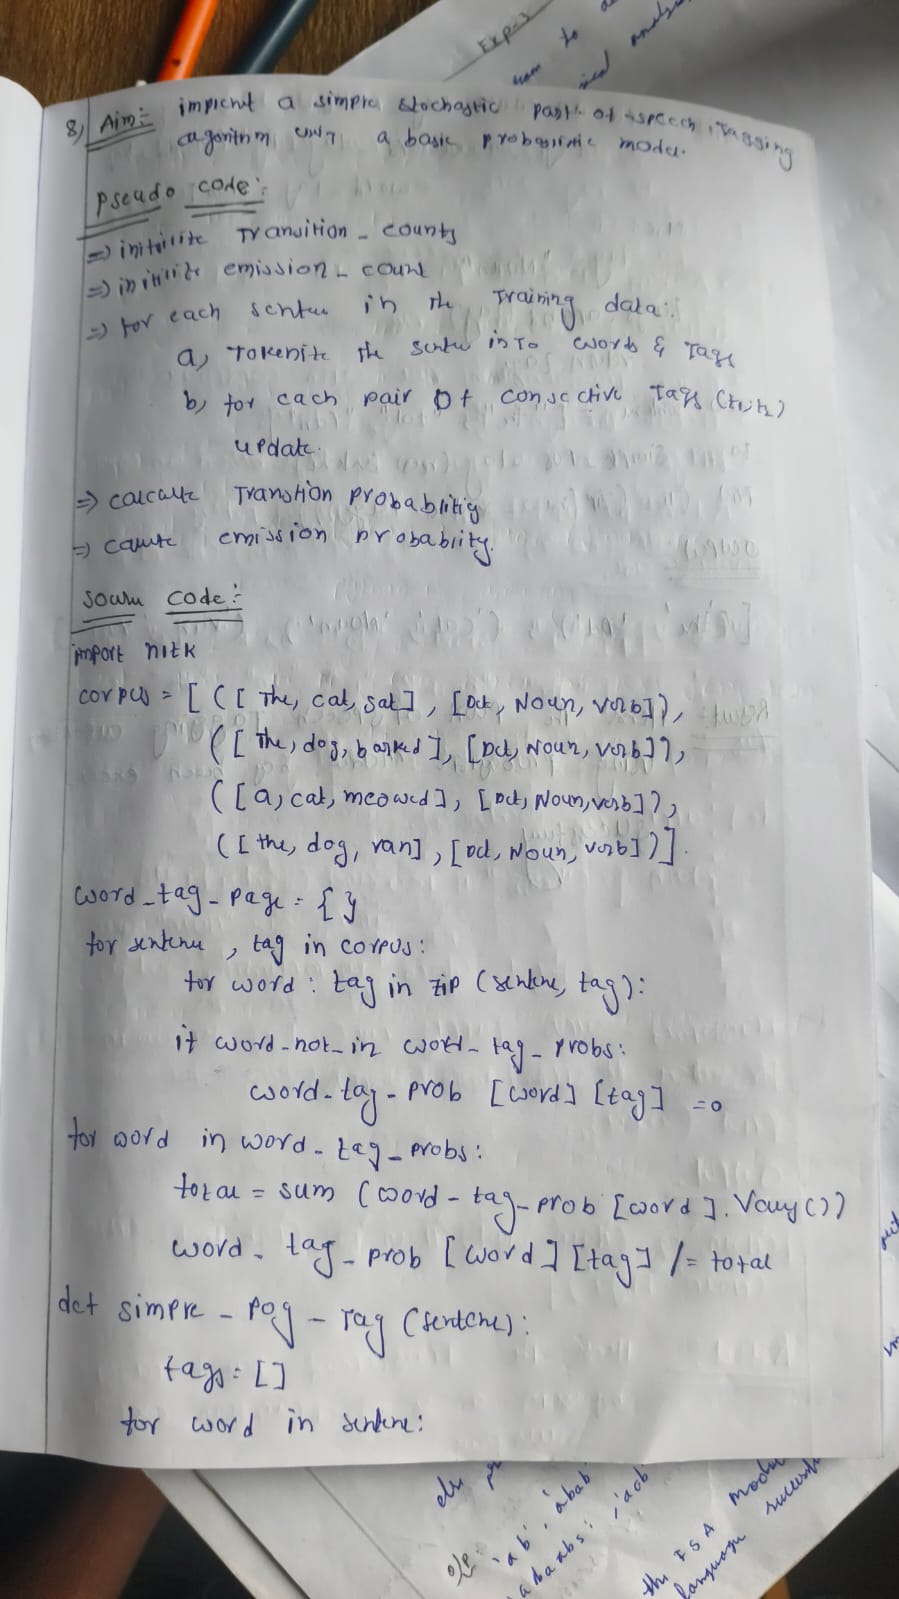 Exp-3
8) Aim:- implemt a simple stochastic part of speech Tagging
algorithm using a basic probabilistic model.
pseudo code:
=> initilite Transition_counts
=> initilite emission_count
=> for each sentence in the Training data:
a, Tokenite the sente into words & Tags
b, for each pair of consective Tags (t1,t2)
update.
=> calcute Transtion probablitiy
=> calcute emission probabiity.
Source code:-
import nltk
corpus = [ ([ The, cat, sat], [Det, Noun, verb]),
([ The, dog, barked], [Det, Noun, verb]),
([a, cat, meowed], [Det, Noun, verb]),
([the, dog, ran], [Det, Noun, verb])].
word_tag_page = { }
for sentence, tag in corpus:
for word : tag in zip (sentence, tag):
if word-not-in word_tag_probs:
word_tag_prob [word] [tag] =0
for word in word_tag_probs:
total = sum (word_tag_prob [word].Valuy())
word_tag_prob [word] [tag] /= total
def simple_Pog_Tag (sentence):
tags = []
for word in sentence:
o/p:
'ab', abab
the FSA
language